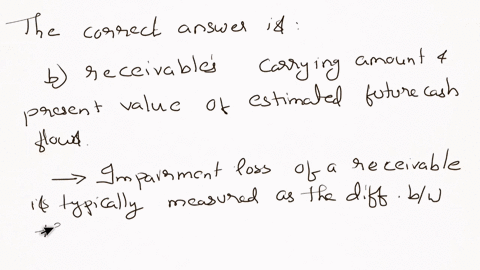 The correct answer is:
b) receivable's carrying amount &
present value of estimated future cash
flows.
→ Impairment loss of a receivable
is typically measured as the diff. b/w